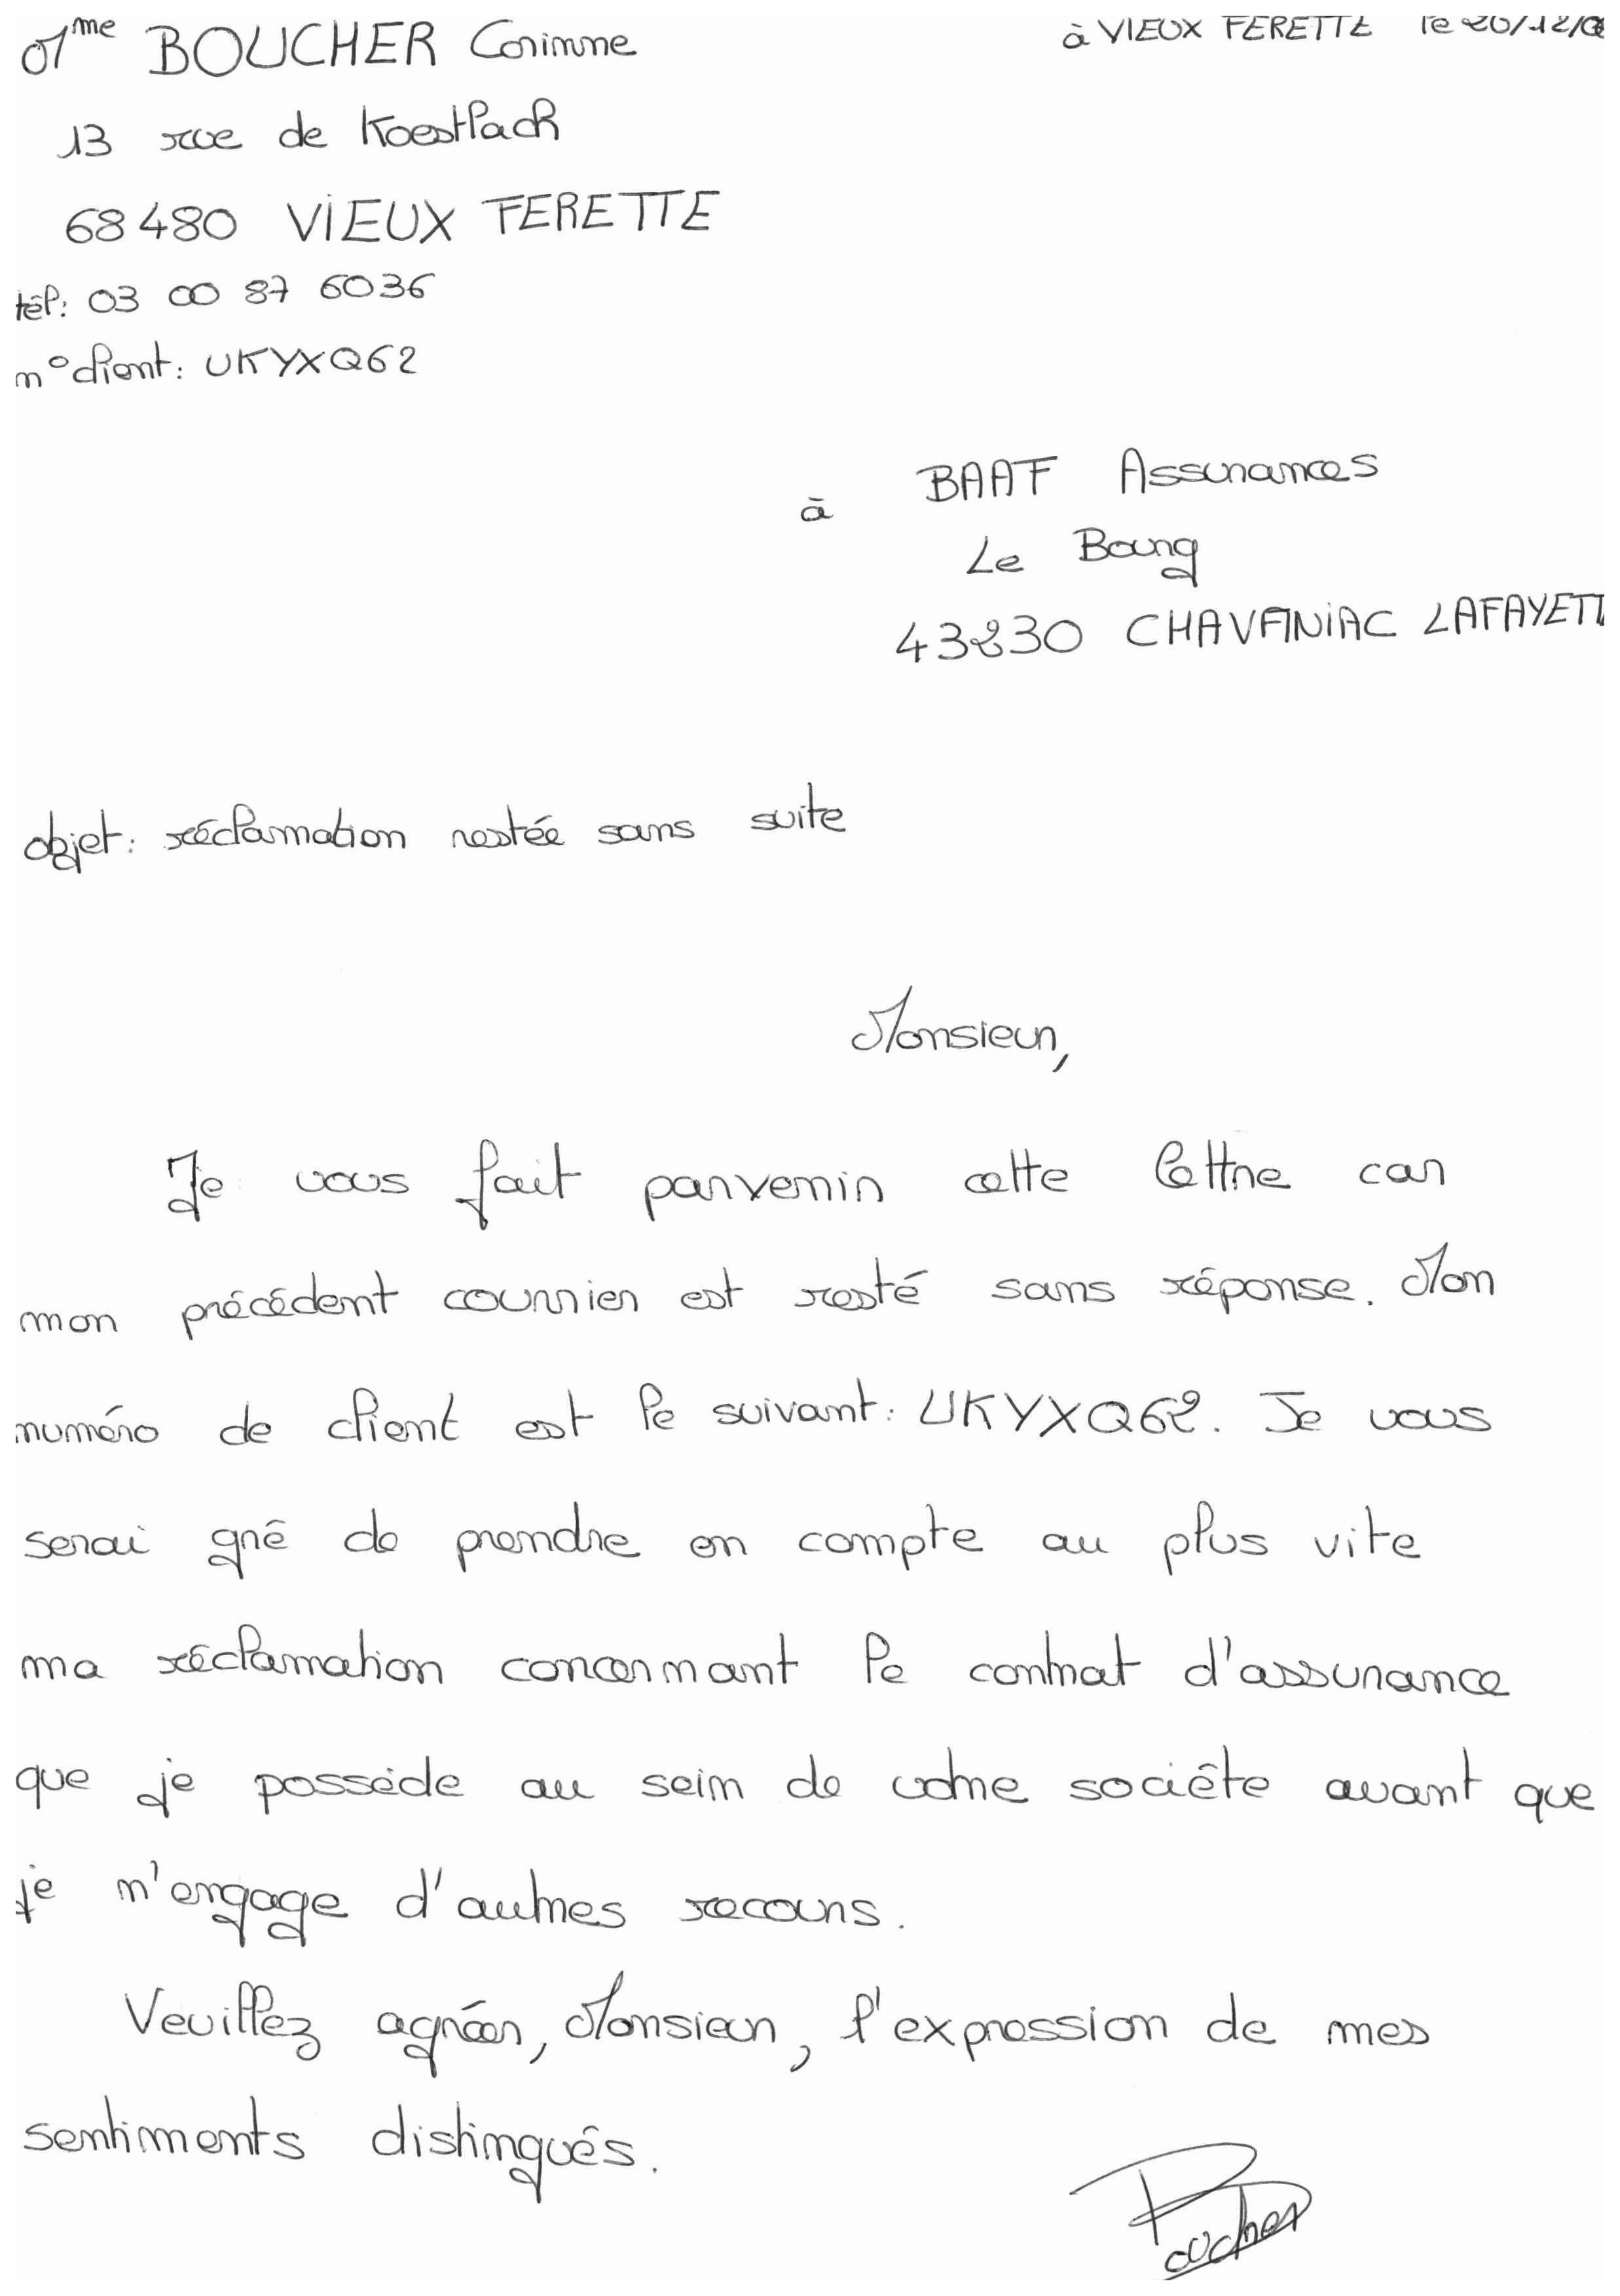 Mme BOUCHER Corinne
à VIEUX FERETTE le 20/12/0
13 rue de Koestlach
68480 VIEUX FERETTE
tél: 03 00 87 6036
n° client: UKYXQ62
BAAF Assurances
à
Le Bourg
43230 CHAVANIAC LAFAYETT
objet: réclamation restée sans suite
Monsieur,
Je vous fait parvenir cette lettre car
mon précédent courrier est resté sans réponse. Mon
numéro de client est le suivant: UKYXQ62. Je vous
serai gré de prendre en compte au plus vite
ma réclamation concernant le contrat d'assurance
que je possède au sein de votre société avant que
je n'engage d'autres recours.
Veuillez agréer, Monsieur, l'expression de mes
sentiments distingués.
Boucher